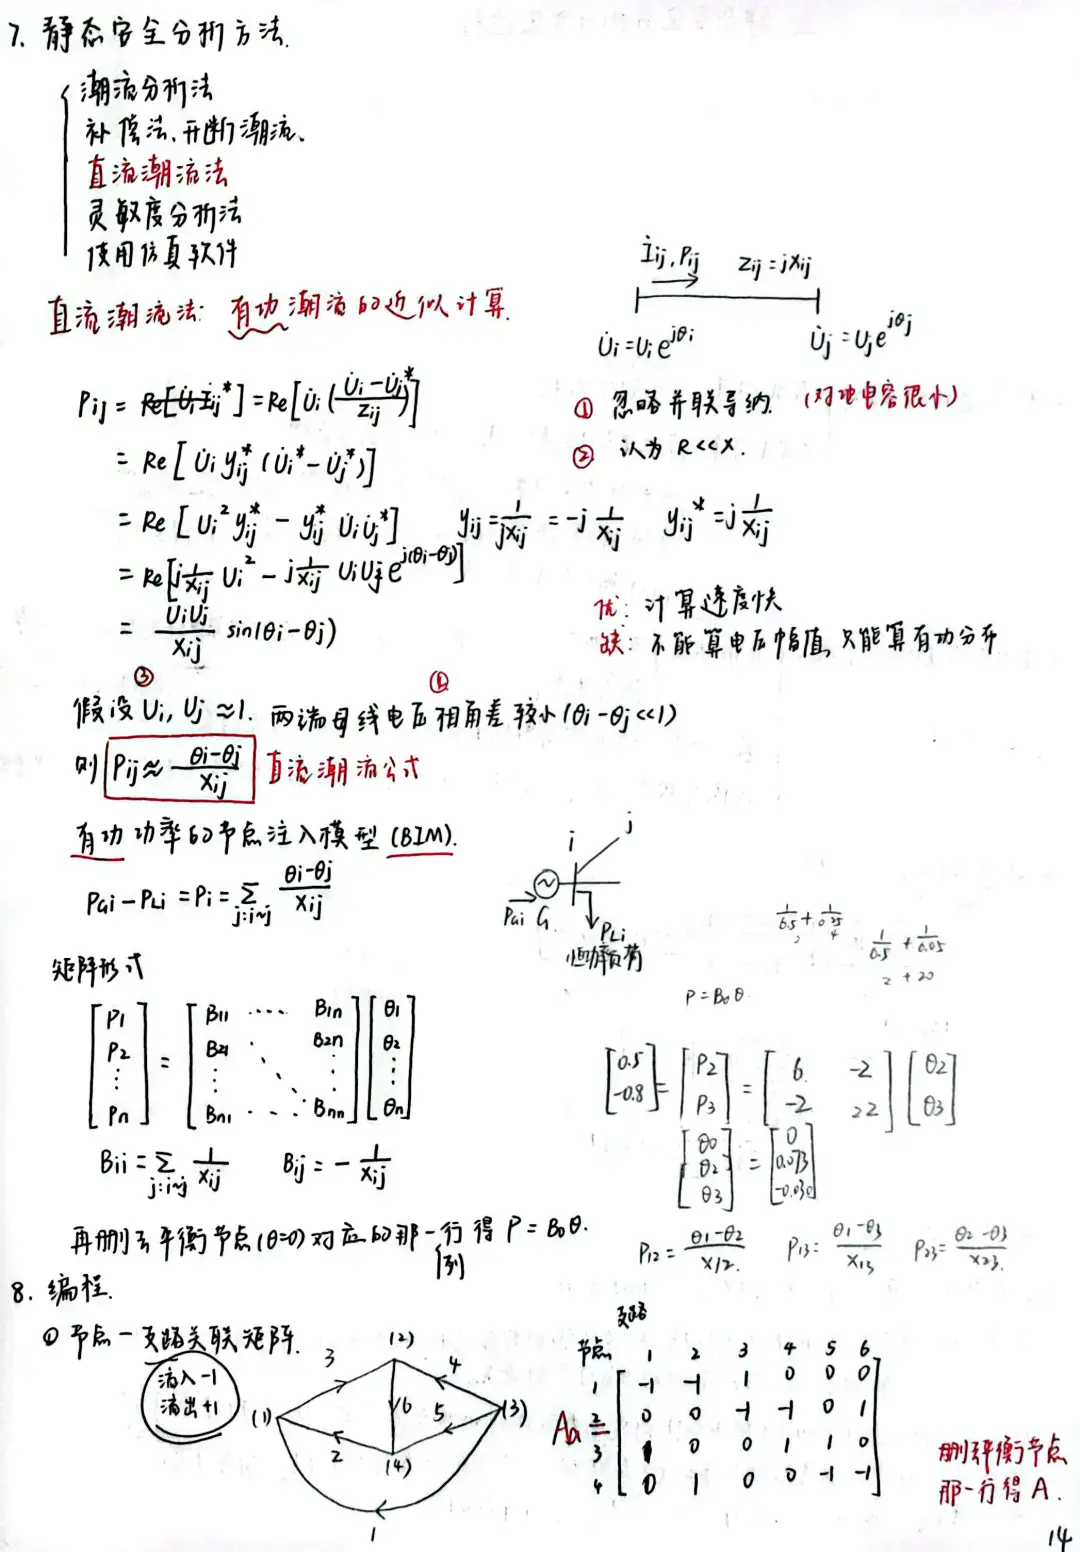 7. 静态安全分析方法.
潮流分析法
补偿法、开断潮流、
直流潮流法
灵敏度分析法
使用仿真软件
İij, Pij  Zij = jXij
直流潮流法: 有功潮流的近似计算.
U̇i = Ui e^{jθi}  U̇j = Uj e^{jθj}
Pij = Re[U̇i İij*] = Re[U̇i((U̇i - U̇j)/Zij)*]
① 忽略并联导纳. (对地电容很小)
= Re[U̇i yij*(U̇i* - U̇j*)]
② 认为 R<<X.
= Re[Ui² yij* - yij* U̇i U̇j*]  yij = 1/(jXij) = -j 1/Xij  yij* = j 1/Xij
= Re[j 1/Xij Ui² - j 1/Xij UiUj e^{j(θi-θj)}]
= UiUj/Xij sin(θi-θj)
优: 计算速度快
缺: 不能算电压幅值, 只能算有功分布
③ ④
假设 Ui, Uj ≈1. 两端母线电压相角差较小(θi-θj<<1)
则 Pij ≈ (θi-θj)/Xij 直流潮流公式
有功功率的节点注入模型 (BIM).
PGi - PLi = Pi = Σ_{j:i~j} (θi-θj)/Xij
i j
PGi G PLi
恒功率负荷
1/0.5 + 1/0.25
2 4
1/0.5 + 1/0.05
2 + 20
P = B0θ
矩阵形式
[P1 P2 ⋮ Pn] = [B11 ···· B1n B21 ⋱ B2n ⋮ ⋱ ⋮ Bn1 ···· Bnn] [θ1 θ2 ⋮ θn]
[0.5 -0.8] = [P2 P3] = [6 -2 -2 22] [θ2 θ3]
[θ0 θ2 θ3] = [0 0.073 -0.030]
Bii = Σ_{j:i~j} 1/Xij  Bij = - 1/Xij
再删去平衡节点(θ=0)对应的那一行得 P = B0θ.
列
P12 = (θ1-θ2)/X12.  P13 = (θ1-θ3)/X13  P23 = (θ2-θ3)/X23.
8. 编程.
① 节点-支路关联矩阵.
流入-1
流出+1
(1) (2) (3) (4)
1 2 3 4 5 6
支路
节点 1 2 3 4 5 6
Aa =
1 -1 -1 1 0 0 0
2 0 0 -1 -1 0 1
3 1 0 0 1 1 0
4 0 1 0 0 -1 -1
删平衡节点
那一行得 A.
14